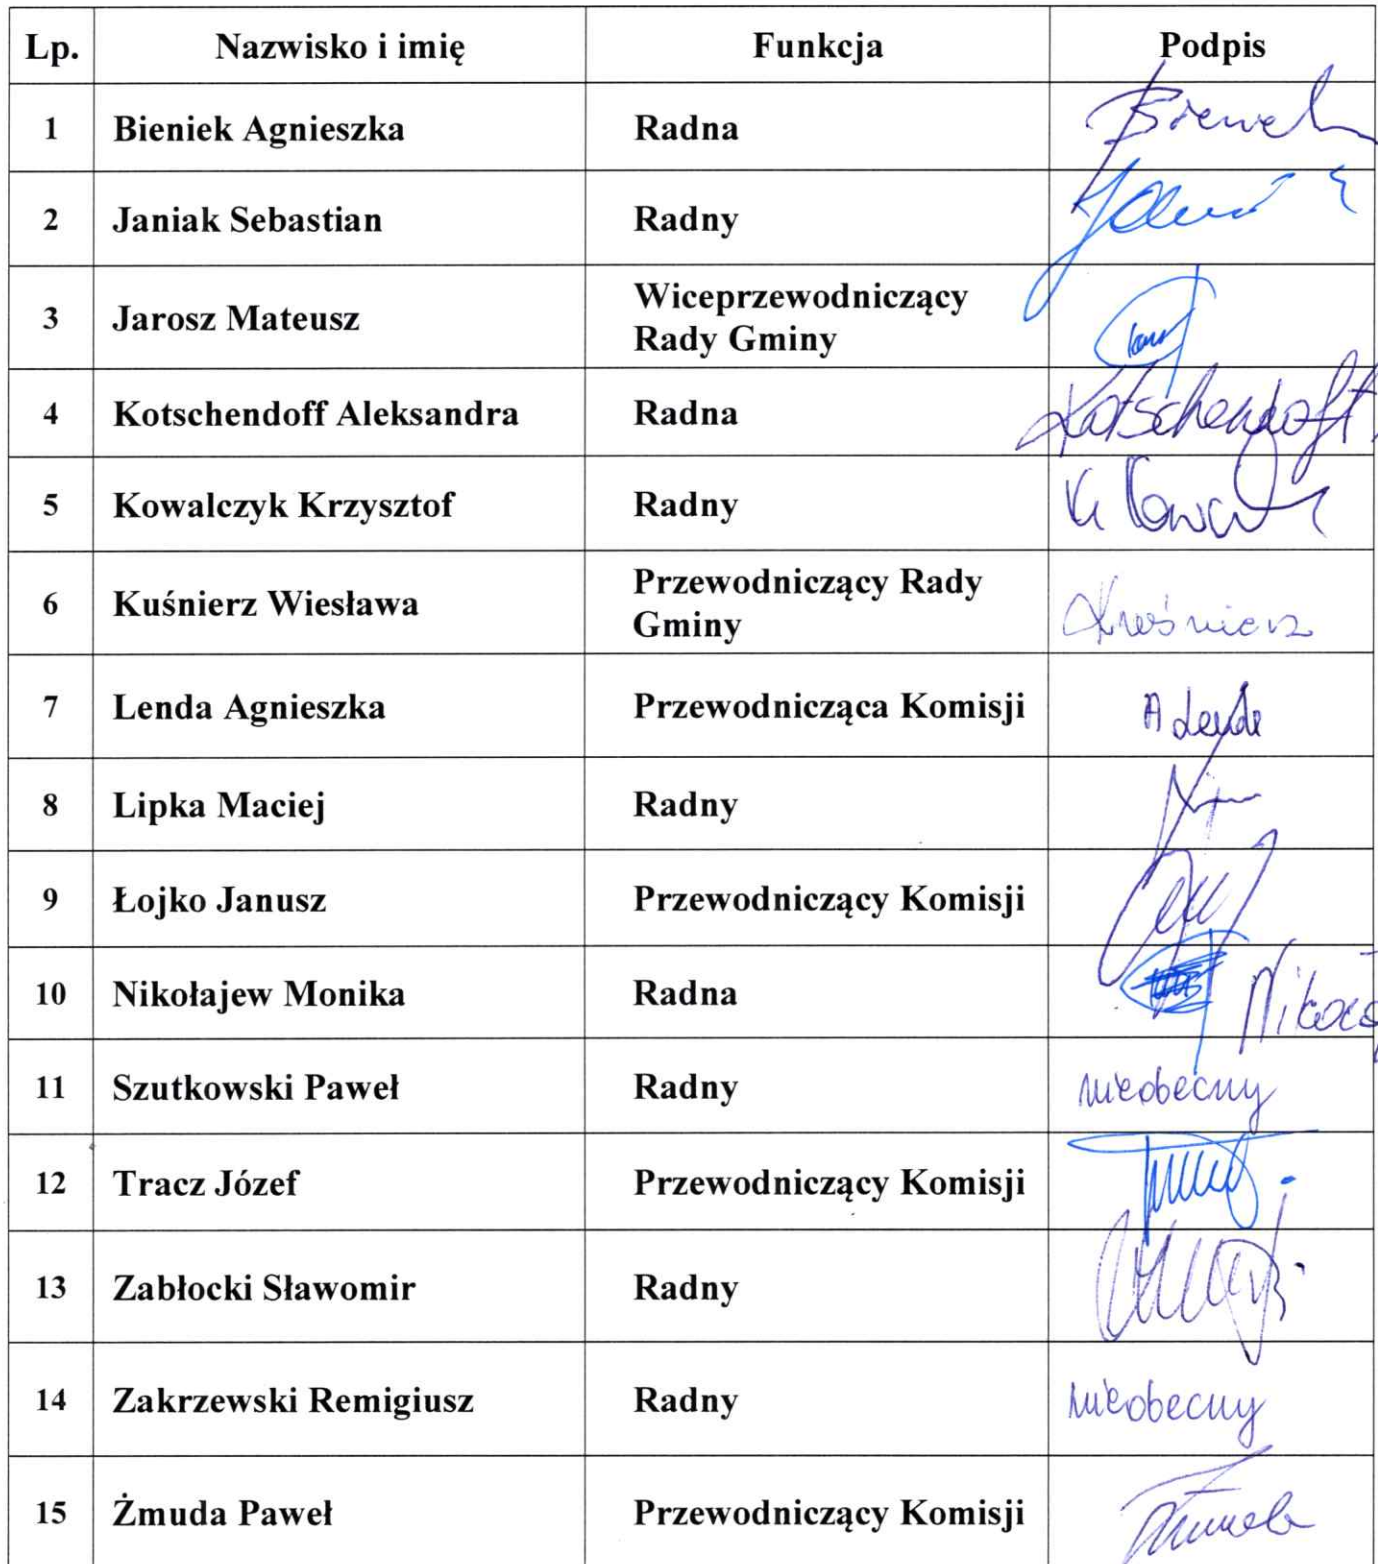 Lp. Nazwisko i imię Funkcja Podpis
1 Bieniek Agnieszka Radna
2 Janiak Sebastian Radny
3 Jarosz Mateusz Wiceprzewodniczący
Rady Gminy
4 Kotschendoff Aleksandra Radna Kotschendoff
5 Kowalczyk Krzysztof Radny
6 Kuśnierz Wiesława Przewodniczący Rady
Gminy Kuśnierz
7 Lenda Agnieszka Przewodnicząca Komisji A Lenda
8 Lipka Maciej Radny
9 Łojko Janusz Przewodniczący Komisji
10 Nikołajew Monika Radna
11 Szutkowski Paweł Radny nieobecny
12 Tracz Józef Przewodniczący Komisji
13 Zabłocki Sławomir Radny
14 Zakrzewski Remigiusz Radny nieobecny
15 Żmuda Paweł Przewodniczący Komisji